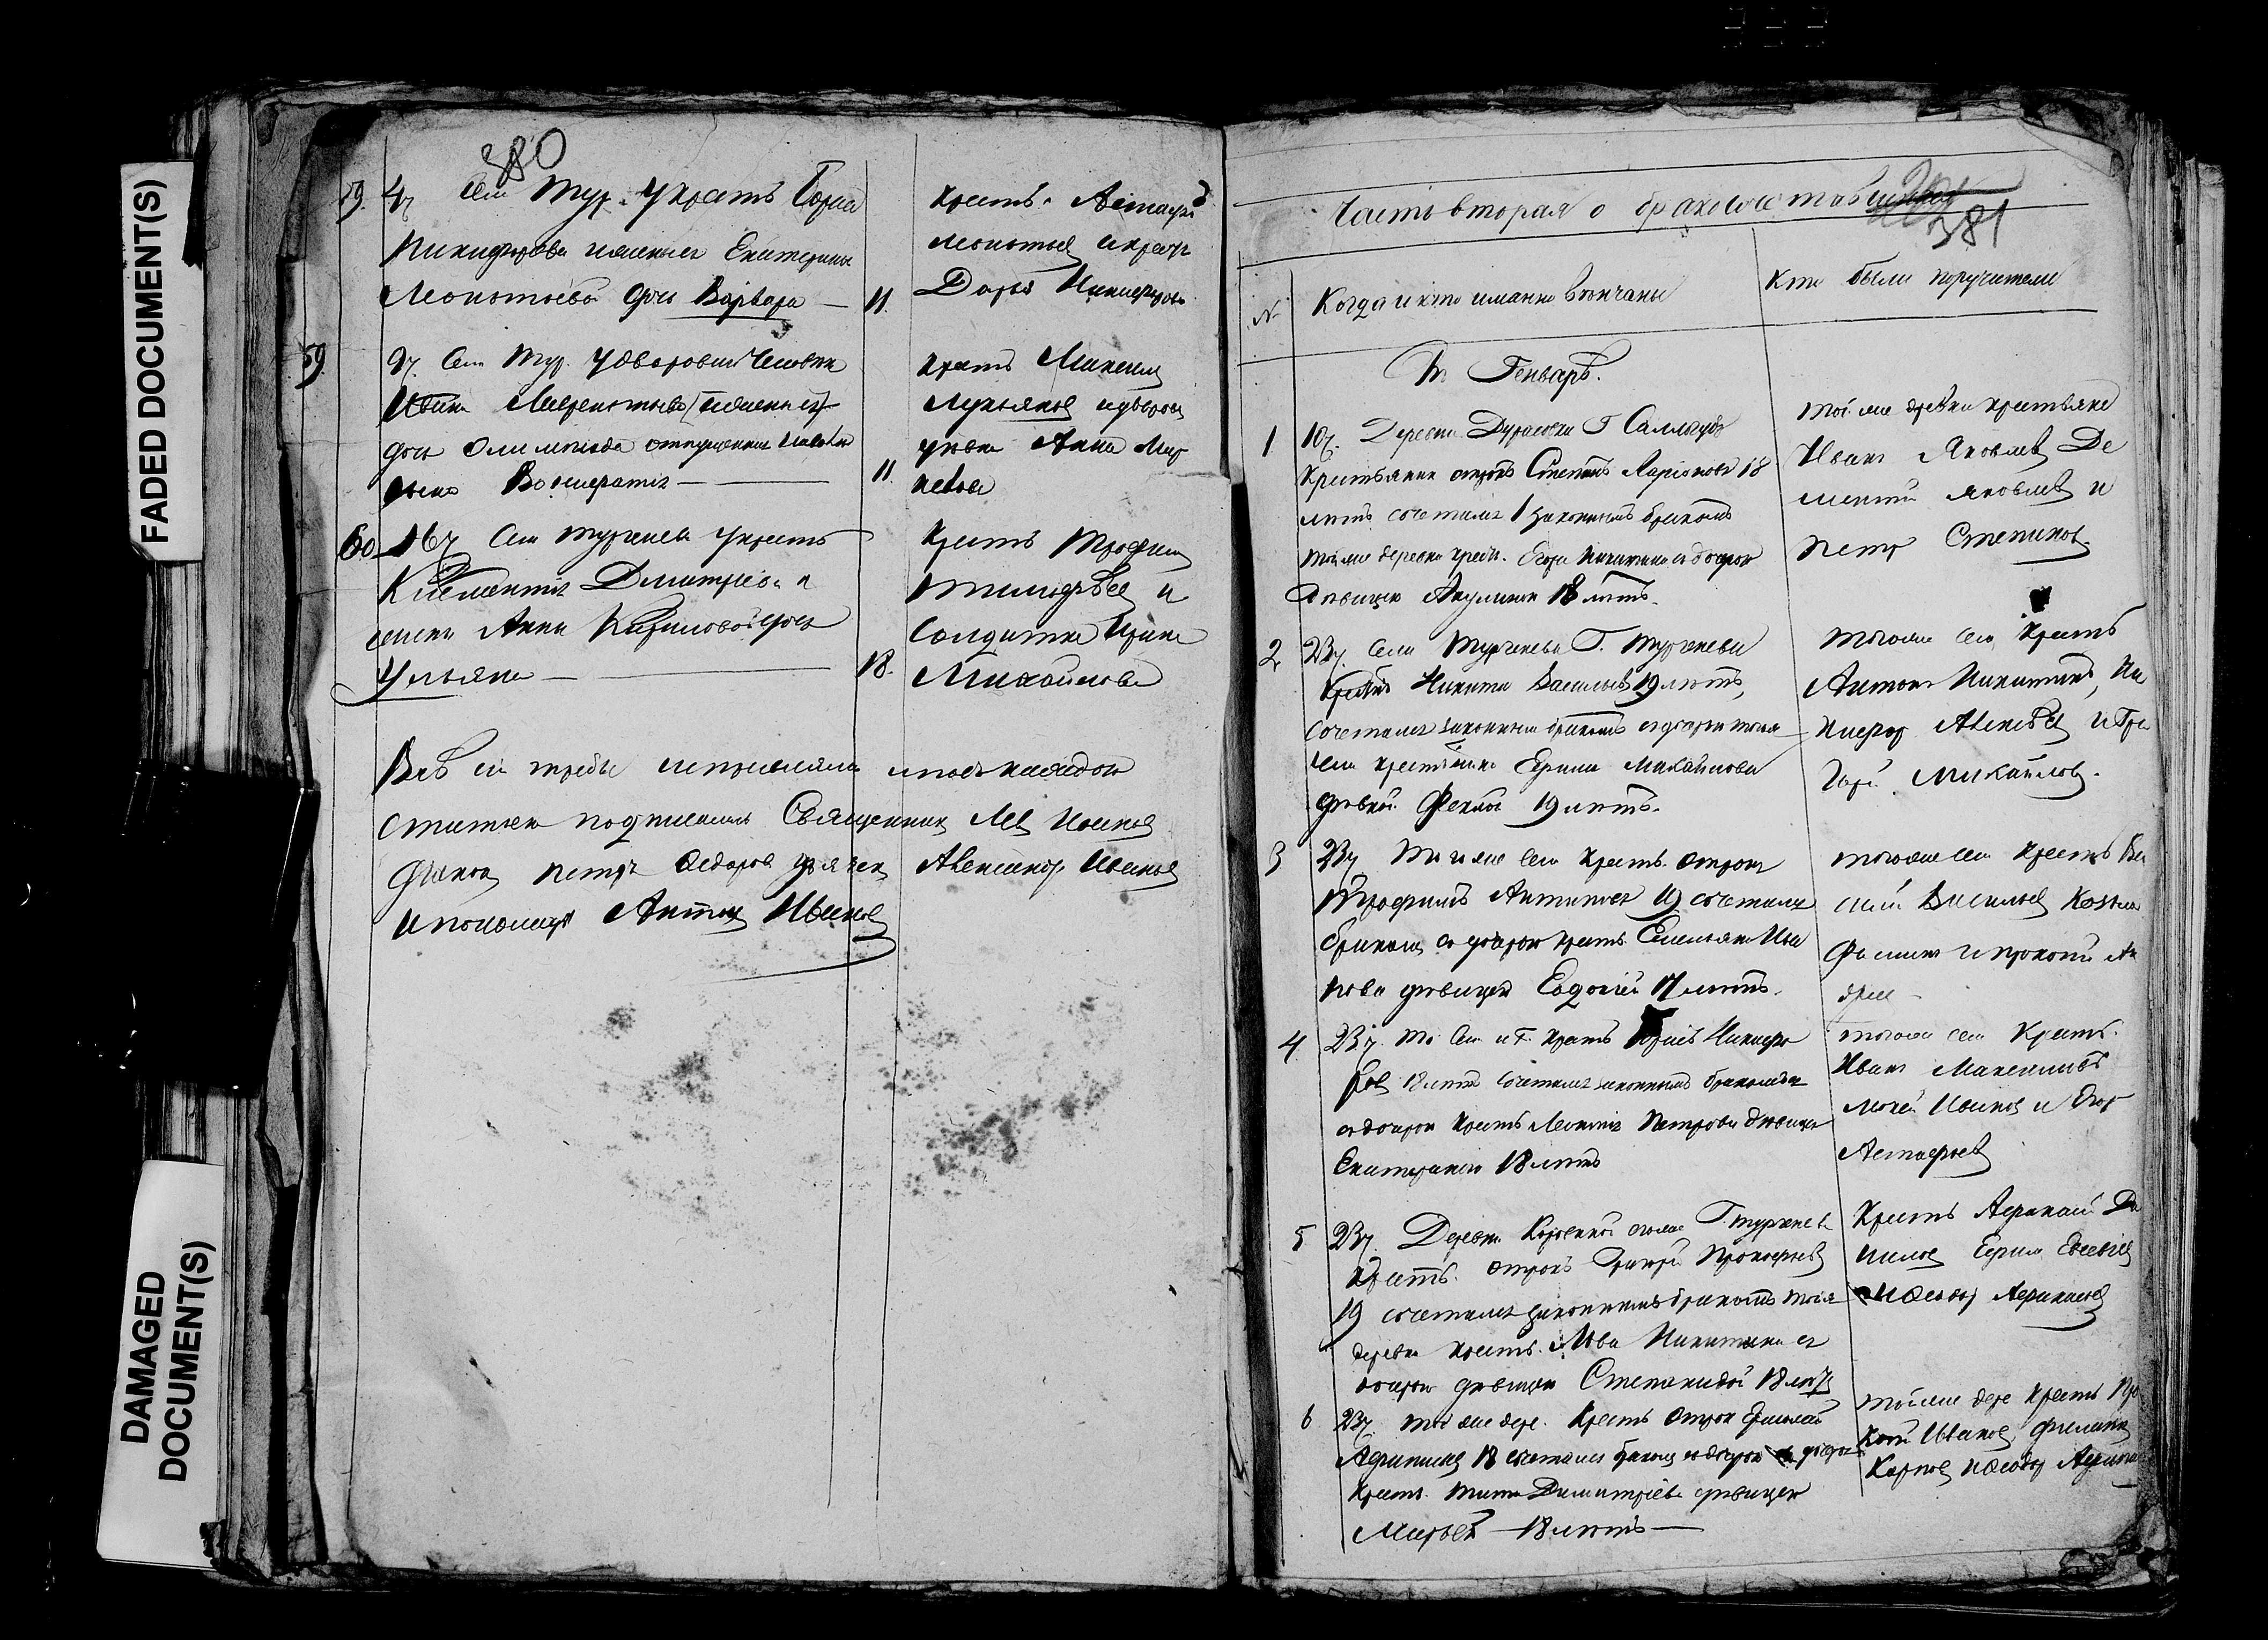 FADED DOCUMENT(S)
DAMAGED
DOCUMENT(S)
380
59. 4ч Села Тур. у крестъ Бориса
Никифорова жены ег Екатерины
Леонтьевой дочь Варвара — 11.
Крестъ. Астафей
Леонтьев
Дарья Никифорова
59
9ч Села Тур. у двороваго человека
Ивана Лаврентьева
дочь Олимпіада
11.
Крестъ Максимъ
Лукьянов и дворов
девка Анна Мар
кова
60 16ч Села Тургенева у крестъ
Климентія Дмитріева и
жены Анны Кириловой дочь
Ульяна — 18.
Крестъ Трофим
Тимофеев и
солдатка Ирина
Михайлова
Всѣ сіи требы исправляли и по
статьям подписали Священник Лев Иванов
Диакон Петръ Федоров дьячек Александр Иванов
и пономарь Антон Иванов
Часть вторая о бракосочетавшихся
381
№ Когда и кто имянно венчаны
Кто были поручители
Въ Генварѣ.
1 10ч. Деревни Дурасовки Г
Крестьянин отрокъ Степанъ Ларіонов 18
лѣтъ сочетался 1 законнымъ бракомъ
той же деревни крест. Егора Никитина с дочерью
девицею Акулиною 18 лѣтъ.
той же деревни крестьяне
Иван Яковлев Де
ментій Яковлев и
Петр Степанов
2 23ч. Села Тургенева Г. Тургенева
Крестъ Никита Васильев 19 лѣтъ,
сочетался законным бракомъ с дочерью того же
села крестьянина Ефима Михайлова
девкой Феклой 19 лѣтъ.
того же села Крестъ
Антон Никитин, Ни
кифор Алексѣев и Гри
горій Михайлов.
3 23ч Того же села Крестъ. отрок
Трофимъ Антипов 19 сочетался
браком с дочерью крестъ. Емельяна Ива
нова девицею Евдокіей 17 лѣтъ.
того же села Крестъ Ва
силій Васильев Козьма
Фомин и Прокопій Ан
дрее
4. 23ч. То Села и Г. Крестъ Борисъ Никифо
ров 18 лѣтъ сочетался законнымъ бракомъ
с дочерью Крестъ Леонтія Петрова девицею
Екатериною 18 лѣтъ
того же села Крестъ.
Иван Максимов
Мокей Иванов и Егор
Астафьев
5 23ч. Деревни Коровиной Г. Тургенева
Крестъ. отрокъ Григорій Прокофьев
19 сочетался законнымъ бракомъ тоя же
деревни Крестъ. Льва Никитина с
дочерью девицею Степанидой 18 лѣтъ
Крестъ Афанасій Да
нилов Ефим Евсеев
и Федор Афанасьев
6 23ч. той же дере. Крестъ отрок Ермолай
Афанасьев 18 сочетался браком с дочерью
Крест. Тита Димитріева девицею
Марьей — 18 лѣтъ —
той же дере Крестъ Про
кофій Иванов, Филипп
Карпов и Федор Афанась